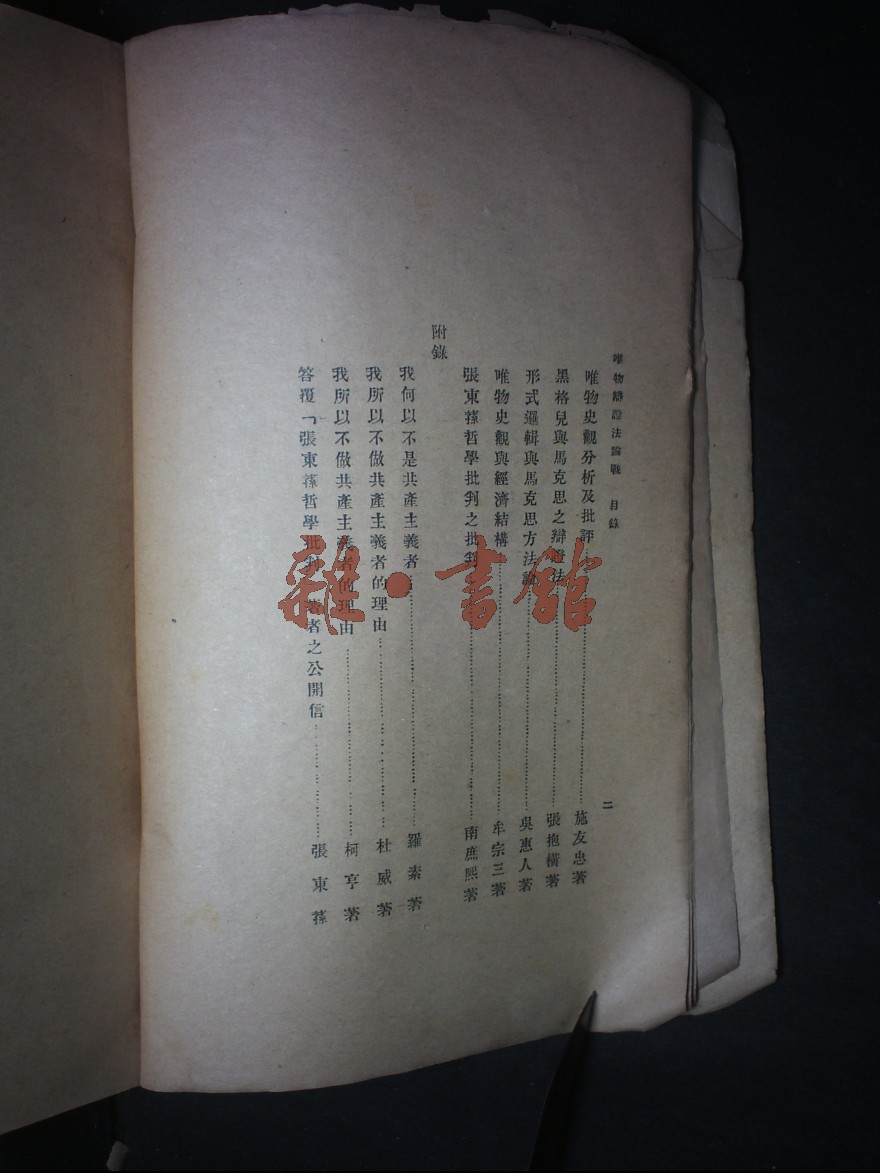 唯物辯證法論戰 目錄
二
唯物史觀分析及批評……施友忠著
黑格兒與馬克思之辯證法……張抱橫著
形式邏輯與馬克思方法論……吳惠人著
唯物史觀與經濟結構……牟宗三著
張東蓀哲學批判之批判……南庶熙著
附錄
我何以不是共產主義者……羅素著
我所以不做共產主義者的理由……杜威著
我所以不做共產主義者的理由……柯亨著
答覆「張東蓀哲學批判」著者之公開信……張東蓀
雜·書館